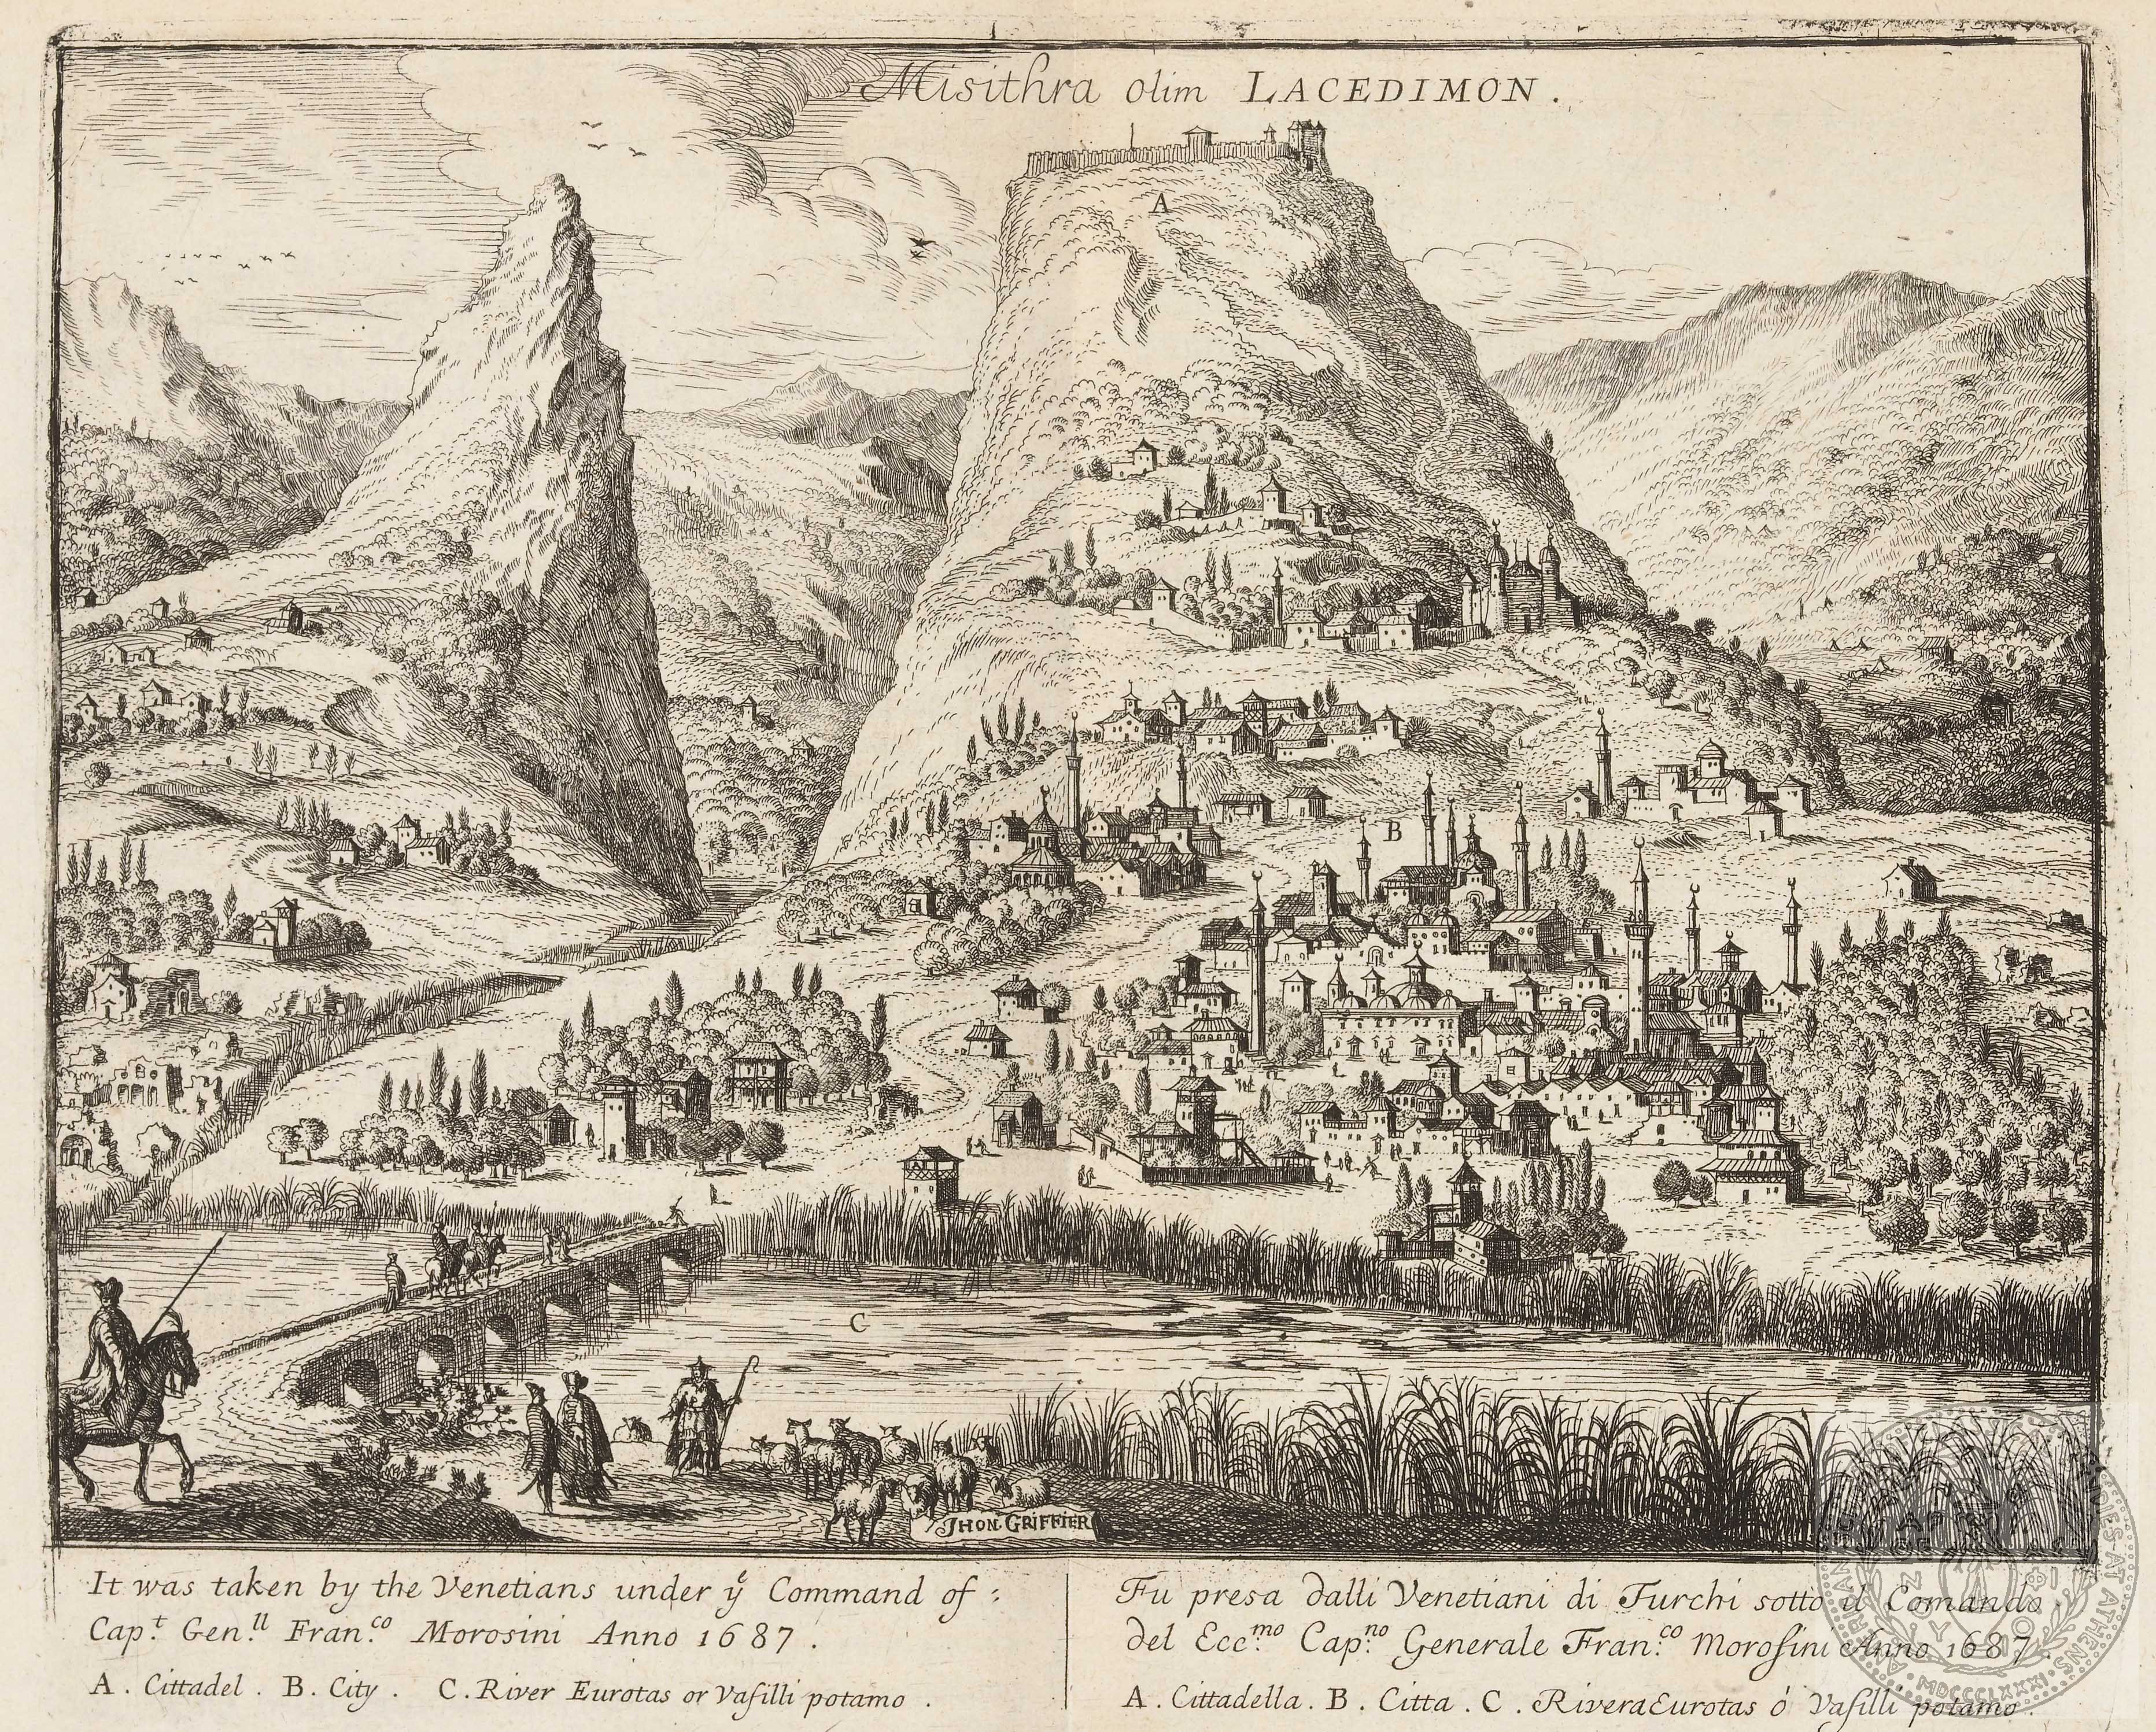 Misithra olim LACEDIMON.
A
B
C
JHON. GRIFFIER
It was taken by the Venetians under yͤ Command of :
Cap.ᵗ Gen.ˡˡ Fran.ᶜᵒ Morosini Anno 1687.
A. Cittadel. B. City. C. River Eurotas or Vasilli potamo.
Fu presa dalli Venetiani di Turchi sotto il Comando
del Ecc.ᵐᵒ Cap.ⁿᵒ Generale Fran.ᶜᵒ Moroſini Anno 1687.
A. Cittadella. B. Citta. C. Rivera Eurotas ó Vaſilli potamo.